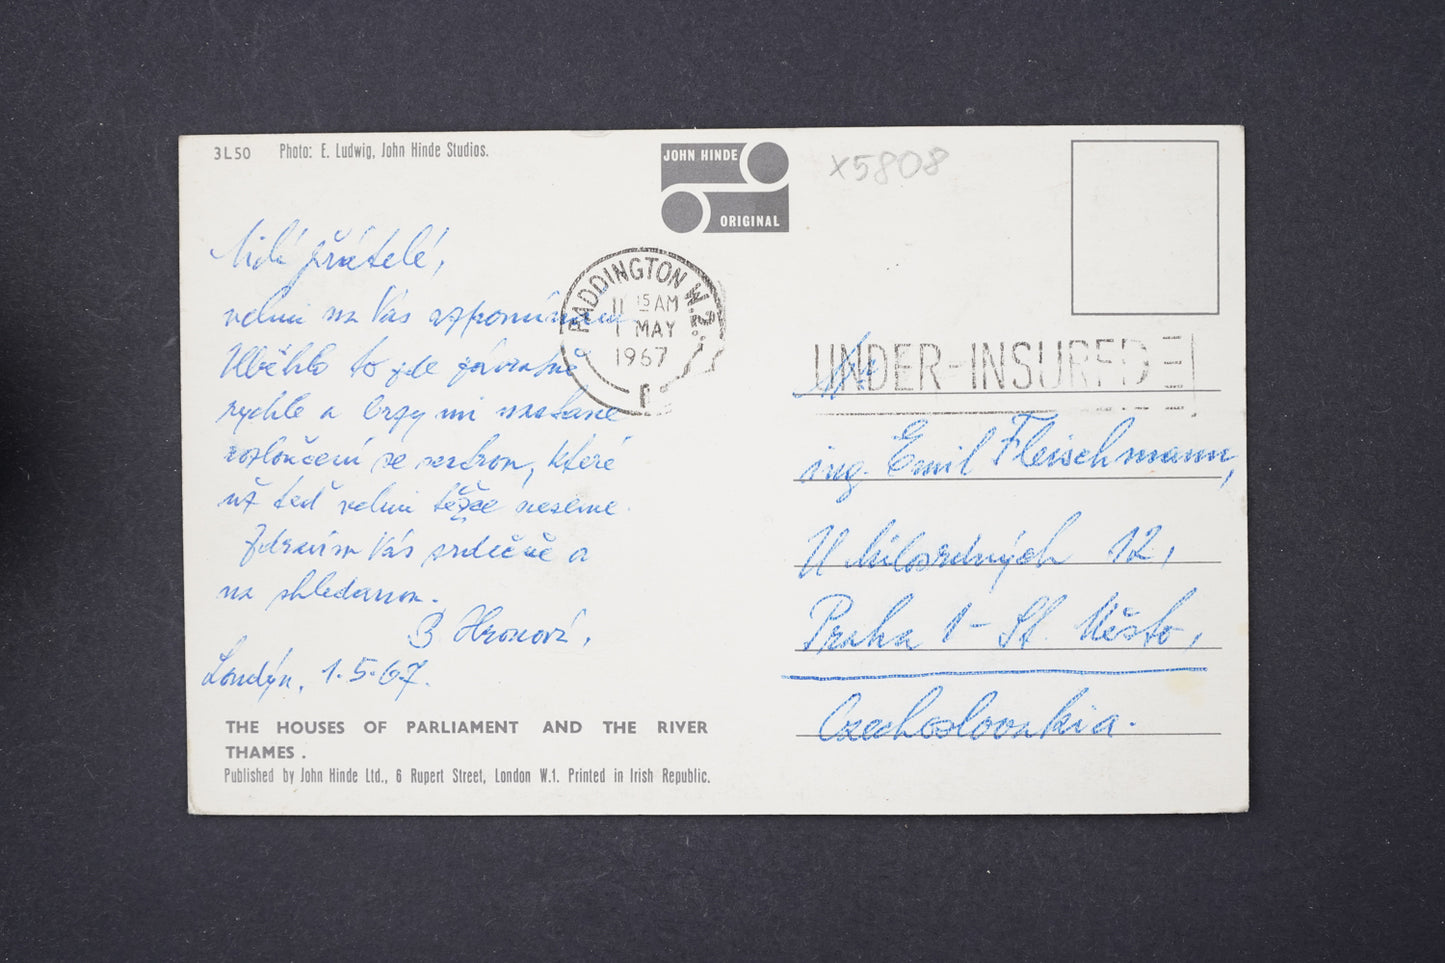 3L50 Photo: E. Ludwig, John Hinde Studios.
JOHN HINDE
ORIGINAL
X5808
Milí přátelé,
velmi na Vás vzpomínám
Uběhlo to zde závratně
rychle a brzy mi nastane
rozloučení se sestrou, které
už teď velmi těžce neseme.
Zdravím Vás srdečně a
na shledanou.
B Hronová,
Londýn, 1.5.67.
THE HOUSES OF PARLIAMENT AND THE RIVER
THAMES.
Published by John Hinde Ltd., 6 Rupert Street, London W.1. Printed in Irish Republic.
PADDINGTON W.2.
11 15 AM
1 MAY
1967
UNDER-INSURED
ing. Emil Fleischmann,
U Milosrdných 12,
Praha 1 - St. Město,
Czechoslovakia.